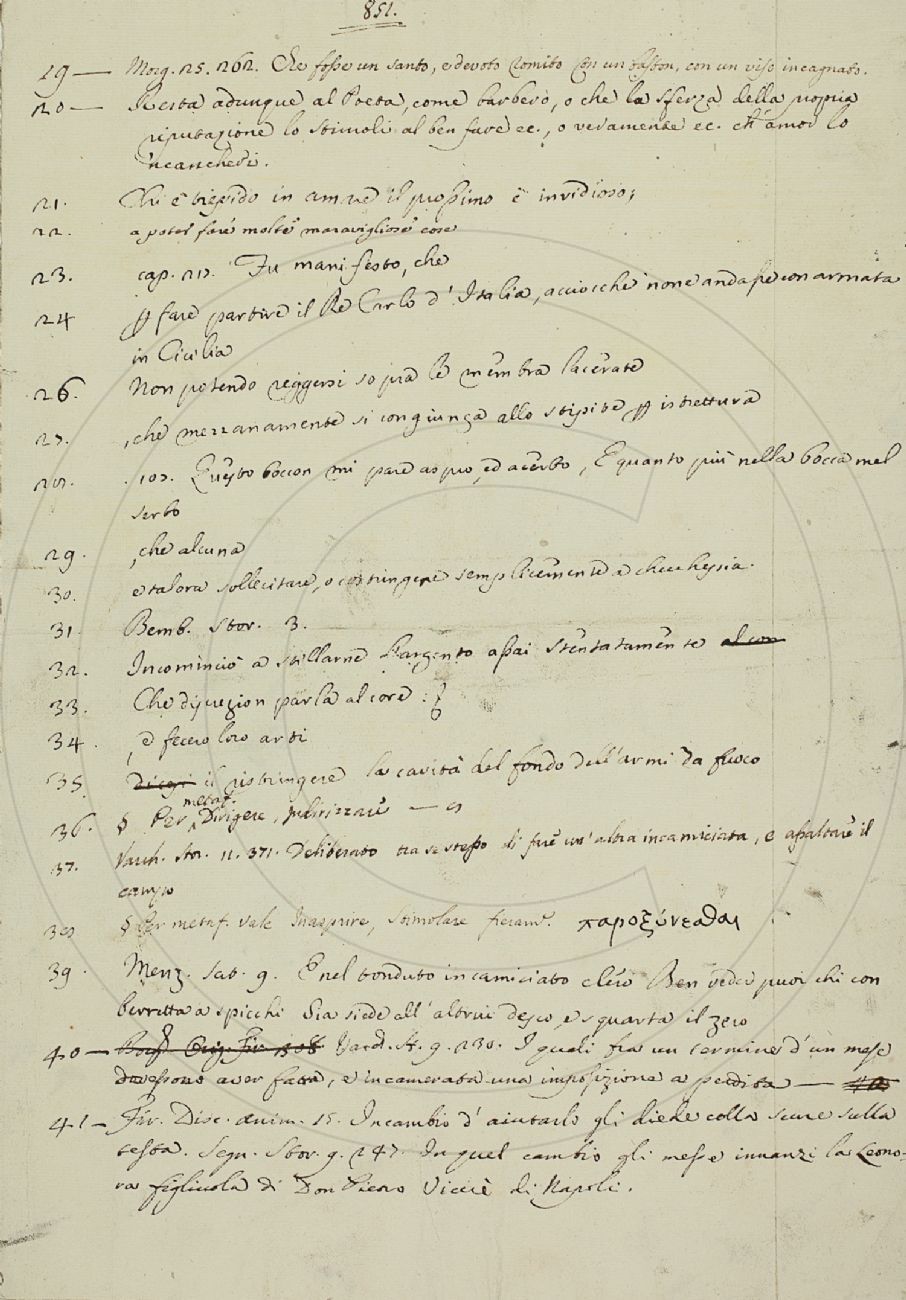 851.
19 — Morg. 25. 262. Che fosse un santo, e devoto romito Con un baston, con un viso incagnato.
20 — Resta adunque al Poeta, come barbero, o che la sferza della propia
riputazione lo stimoli al ben fare ec., o veramente ec. ch' amor lo
'ncancheri.
21. Chi è tiepido in amare il prossimo è invidioso;
22. a poter fare molte maravigliose cose
23. cap. 217. Fu manifesto, che
24 fare partire il Re Carlo d' Italia, acciocchè none andasse con armata
in Cicilia
26. Non potendo reggersi sopra le membra lacerate
27. , che mezzanamente si congiunga allo stipite istrettura
28. . 107. Questo boccon mi pare aspro, ed acerbo, E quanto più nella bocca mel
serbo
29. , che alcuna
30. e talora sollecitare, o costringere semplicemente a checchessia.
31. Bemb. stor. 3.
32. Incominciò a stillarne l'argento assai stentatamente al con
33. Che discrezion parla al core :
34. , e fecero loro arti
35. il ristringere la cavità del fondo dell'armi da fuoco
metaf.
36. § Per, Dirigere, Indirizzare —
37. Varch. Stor. 11. 371. Deliberato tra se stesso di fare un' altra incamiciata, e assaltare il
campo
38 § Per metaf. vale Inasprire, stimolare fieram. παροξύνεσθαι
39. Menz. sat. 9. E nel tonduto incamiciato clero Ben veder puoi chi con
berretta a spicchi Sia siede all' altrui desco, e squarta il zero
40 — Varch. St. 9. 230. I quali fra un termine d' un mese
dovessono aver fatta, e incamerata una imposizione a perdita —
41 — Fir. Disc. anim. 15. In cambio d' aiutarlo gli diede colla scure sulla
testa. Segn. Stor. 9. 247. In quel cambio gli messe innanzi la Leono-
ra figliuola di Don Piero Vicere di Napoli.